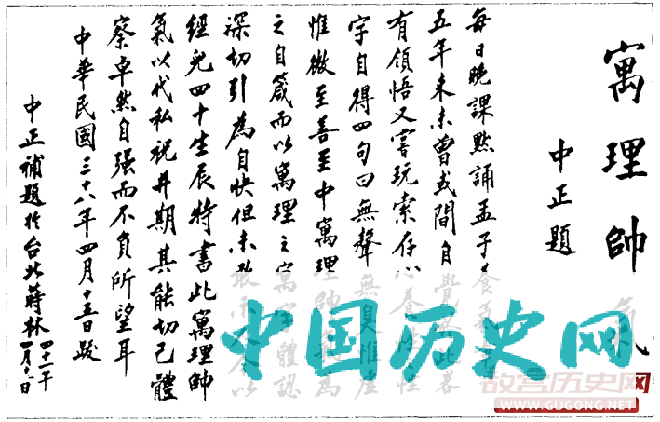 寓理帥氣
中正題
每日晚課默誦孟子養氣
五年來未曾或間自覺此畧
有領悟又嘗玩索存心養性
字自得四句曰無聲無臭惟虛
惟微至善至中寓理帥為
之自箴而以寓理之寓字體認
深切引為自快但未敢今以
經兒四十生辰特書此寓理帥
氣以代私祝并期其能切己體
察卓然自强而不負所望耳
中華民國三十八年四月十五日跋
中正補題於台北蔣林
四十一年
四月日
中国历史网
故宫历史网
WWW.GUGONG.NET